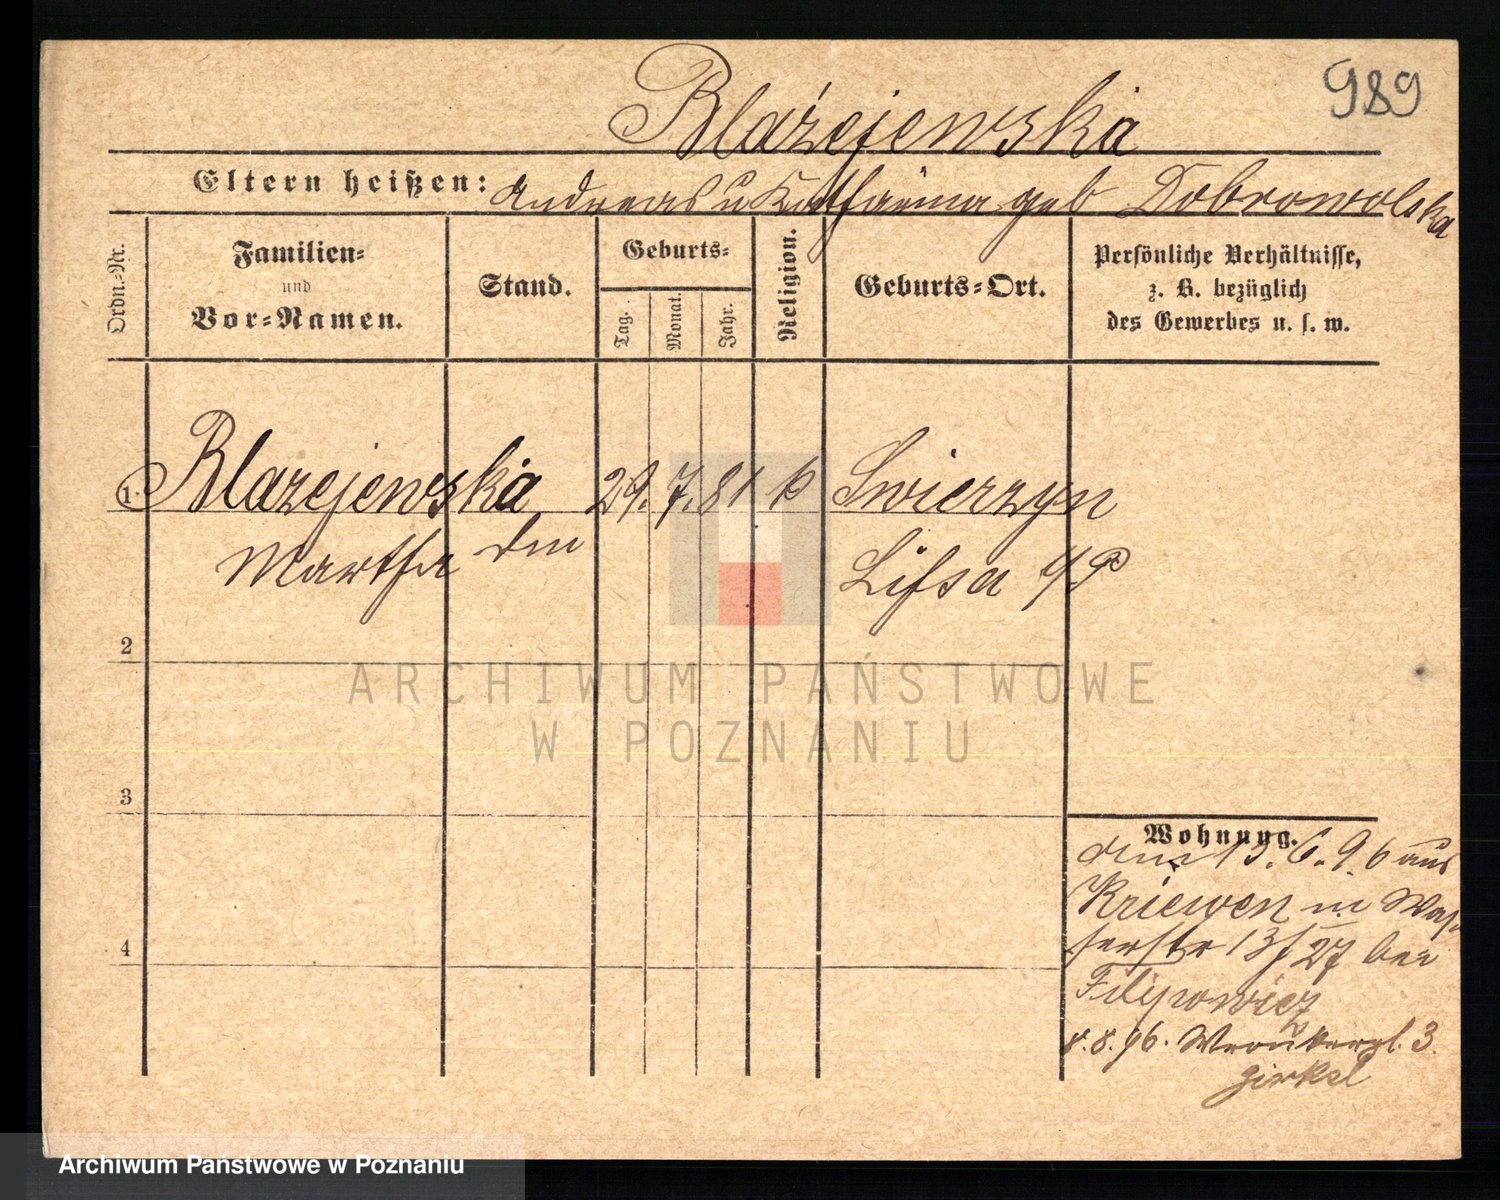 989
Błażejewska
Eltern heißen: Andreas u Katharina geb Dobrowolska
Ordn.-Nr.
Familien-
und
Vor-Namen.
Stand.
Geburts-
Tag.
Monat.
Jahr.
Religion.
Geburts-Ort.
Persönliche Verhältnisse,
z. B. bezüglich
des Gewerbes u. s. w.
1. Blazejewska 29. 7. 81 k Swierzyn
Martha
Lissa
2
3
4
Wohnung.
6. 96 aus
Kriewen in Was
serstr 27 bei
Filipowicz
8. 8. 96. Wronkerpl. 3.
ARCHIWUM PAŃSTWOWE
W POZNANIU
Archiwum Państwowe w Poznaniu